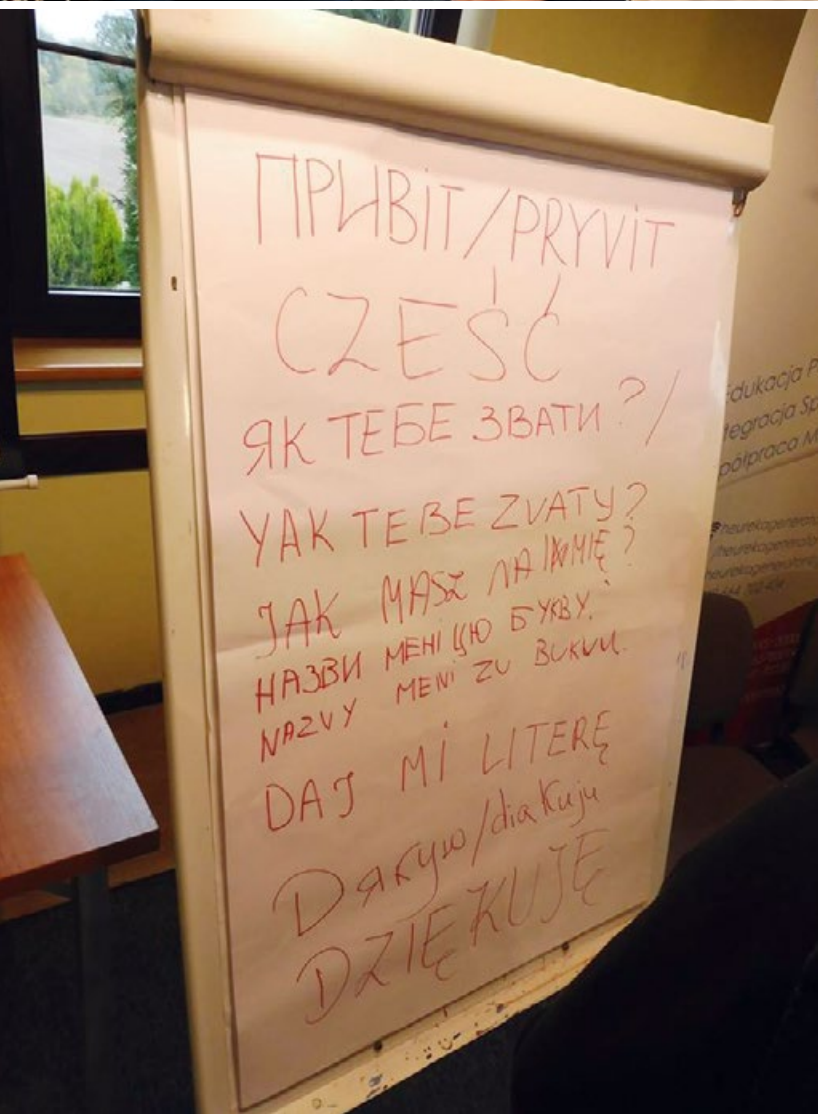 ПРИВІТ/PRYVIT
CZEŚĆ
ЯК ТЕБЕ ЗВАТИ?/
YAK TEBE ZVATY?
JAK MASZ NA IMIĘ?
НАЗВИ МЕНІ ЦЮ БУКВУ.
NAZVY MENI ZU BUKVU.
DAJ MI LITERĘ
Дякую/diakuju
DZIĘKUJĘ
Edukacja